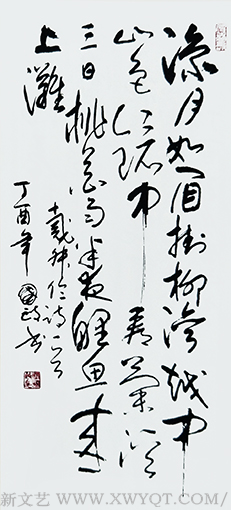 涼月如眉掛柳湾越中
山色镜中看蘭溪
三日桃花雨半夜鲤鱼来
上灘
戴叔伦诗一首
丁酉年
新文艺 WWW.XWYQT.COM